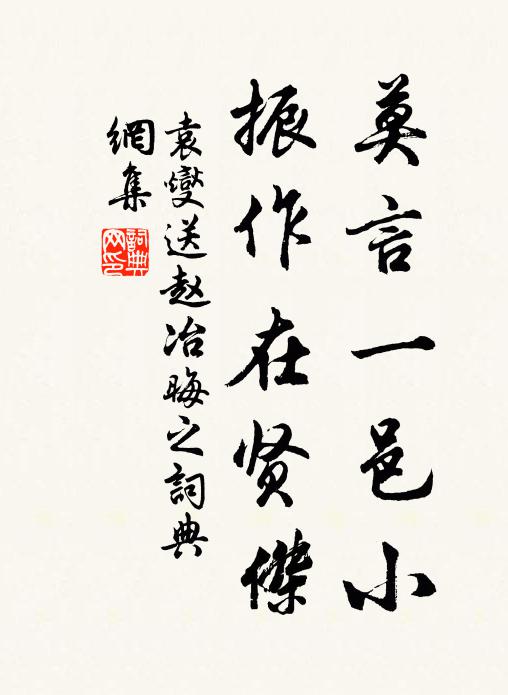 莫言一邑小
振作在贤傑
袁燮送赵冶晦之詞典
網集
詞典
网印